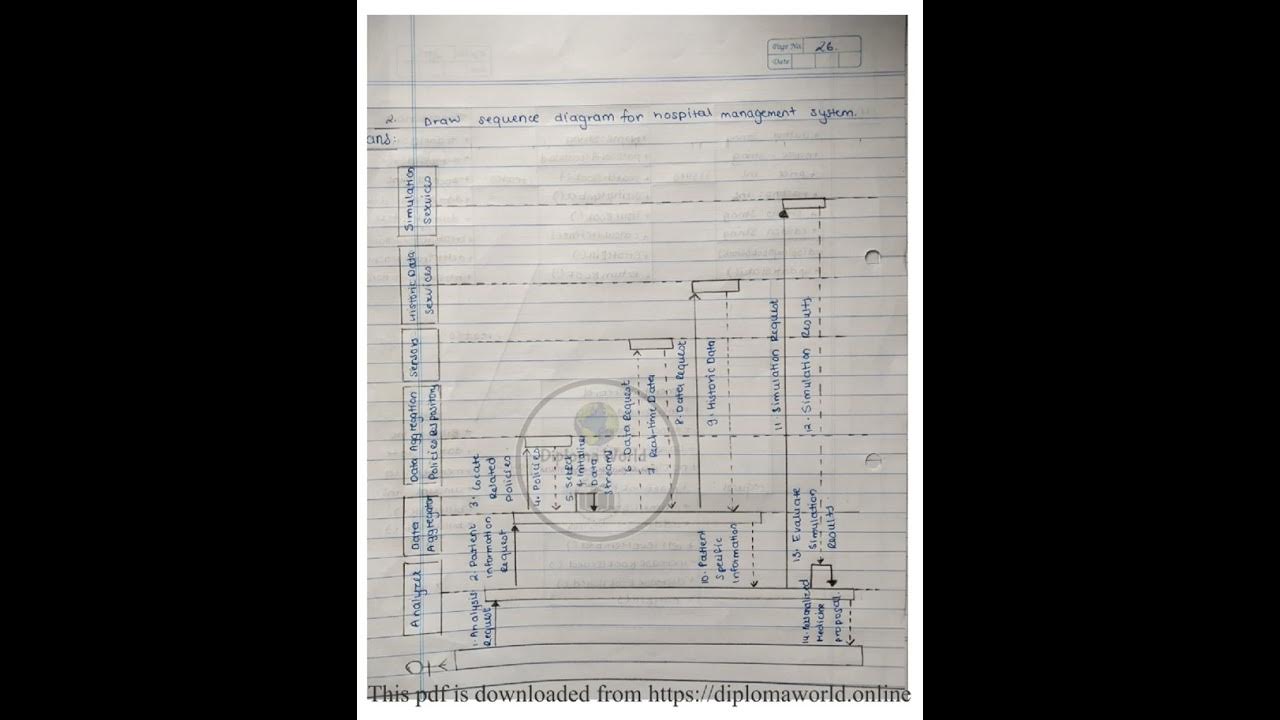 Page No. 26.
Date
2. Draw sequence diagram for hospital management system.
ans:
Analyzer
Data
Aggregator
Data Aggregation
Policies Repository
Sensors
Historic Data
Services
Simulation
Services
1. Analysis
Request
2. Patient
Information
Request
3. Locate
Related
Policies
4. Policies
5. Select
& Initialize
Data
Streams
6. Data Request
7. Real-time Data
8. Data Request
9. Historic Data
10. Patient
Specific
Information
11. Simulation Request
12. Simulation Results
13. Evaluate
Simulation
Results
14. Personalized
Medicine
proposal.
Diploma World
This pdf is downloaded from https://diplomaworld.online